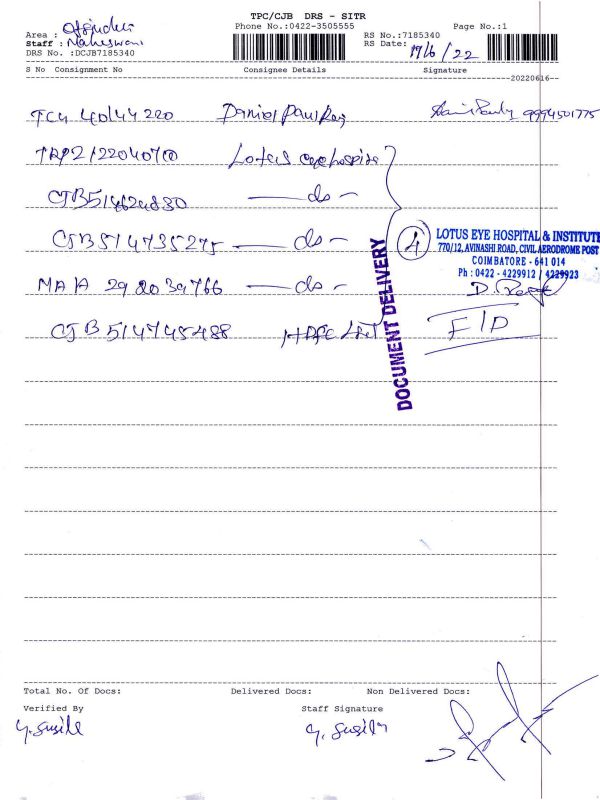 TPC/CJB DRS - SITR
Phone No.:0422-3505555
Page No.:1
Area :
Staff : Maheswari
RS No.:7185340
RS Date: 17/6/22
DRS No. :DCJB7185340
S No Consignment No Consignee Details Signature
20220616
Daniel Paul Raj 9994501775
Lotus eye hospital
CJB514624830 —do-
CJB514735275 —do-
MAA 292039766 —do-
CJB514745488
4
LOTUS EYE HOSPITAL & INSTITUTE
770/12, AVINASHI ROAD, CIVIL AERODROME POST
COIMBATORE - 641 014
Ph : 0422 - 4229912 / 4229923
DOCUMENT DELIVERY
F/D
Total No. Of Docs: Delivered Docs: Non Delivered Docs:
Verified By Staff Signature